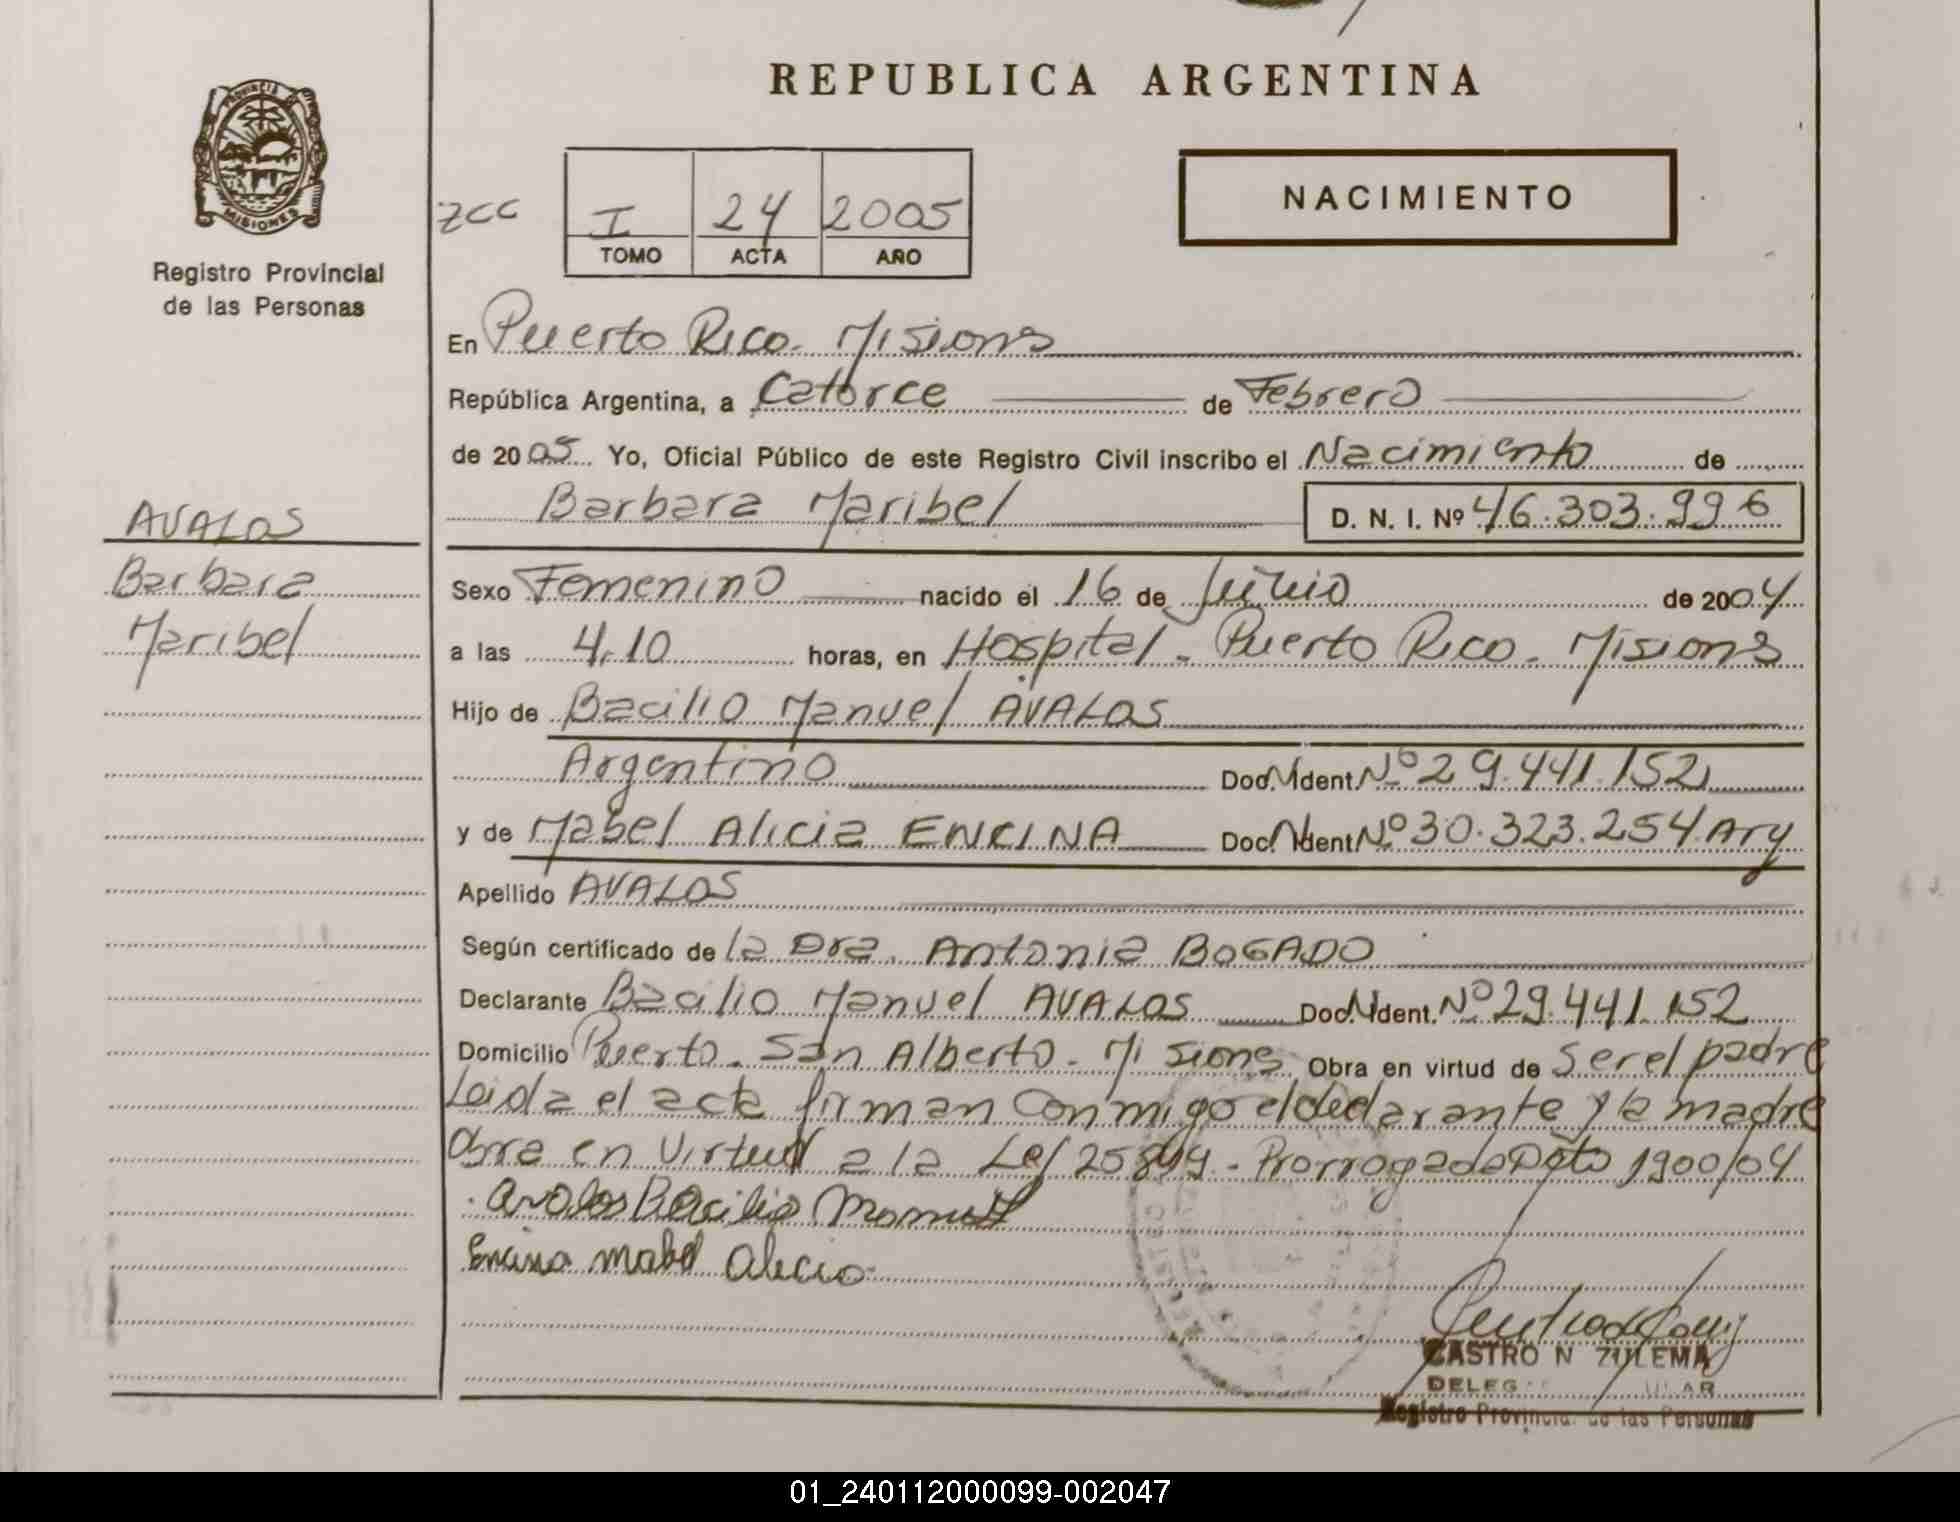 REPUBLICA ARGENTINA
PROVINCIA DE MISIONES
Registro Provincial
de las Personas
zcc I 24 2005
TOMO ACTA AÑO
NACIMIENTO
En Puerto Rico. Misions
República Argentina, a Catorce de Febrero
de 2005 Yo, Oficial Público de este Registro Civil inscribo el Nacimiento de
Barbara Maribel D. N. I. Nº 46.303.996
AVALOS
Barbara
Maribel
Sexo Femenino nacido el 16 de de 2004
a las 4.10 horas, en Hospital - Puerto Rico. Misions
Hijo de Bacilio Manuel AVALOS
Argentino Doc. Ident. Nº 29.441.152
y de Mabel Alicia ENCINA Doc. Ident. Nº 30.323.254. Arg
Apellido AVALOS
Según certificado de la Dra. Antonia BOGADO
Declarante Bacilio Manuel AVALOS Doc. Ident. Nº 29.441.152
Domicilio Puerto - San Alberto - Misions Obra en virtud de Ser el padre
Leida el acta firman Conmigo el declarante y la madre
Obra en Virtud a la Ley 25819 - Prorrogado Dcto 1900/04
Avalos Bacilio Manuel
Encina Mabel Alicia
CASTRO N ZULEMA
Registro Provincial de las Personas
01_240112000099-002047